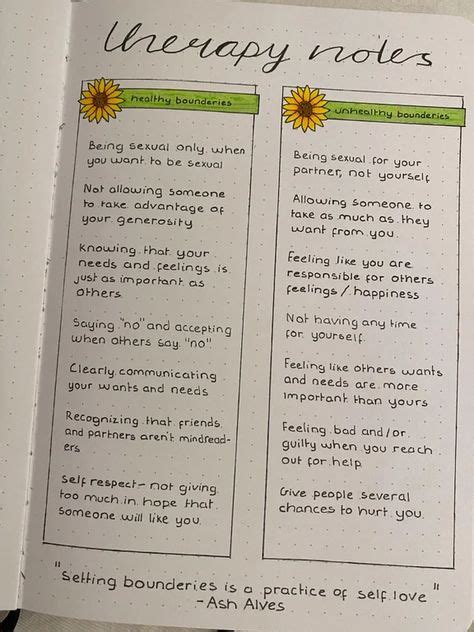 therapy notes
healthy bounderies
Being sexual only when
you want to be sexual
Not allowing someone
to take advantage of
your generosity
Knowing that your
needs and feelings is
just as important as
others.
Saying "no" and accepting
when others say "no"
Clearly communicating
your wants and needs
Recognizing that friends
and partners aren't mindread-
ers
Self respect - not giving
too much in hope that
someone will like you.
unhealthy bounderies
Being sexual for your
partner, not yourself
Allowing someone to
take as much as they
want from you.
Feeling like you are
responsible for others
feelings / happiness
Not having any time
for yourself.
Feeling like others wants
and needs are more
important than yours
Feeling bad and/or
guilty when you reach
out for help
Give people several
chances to hurt you.
"Setting bounderies is a practice of self love"
-Ash Alves